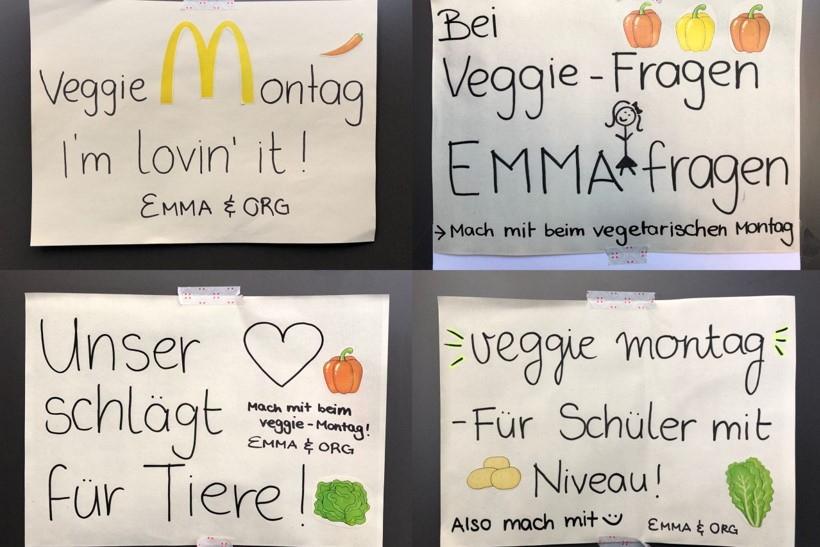 Veggie Montag
I'm lovin' it!
EMMA & ORG
Bei
Veggie-Fragen
EMMA fragen
→ Mach mit beim vegetarischen Montag
Unser
schlägt
für Tiere!
Mach mit beim
veggie-Montag!
EMMA & ORG
veggie montag
-Für Schüler mit
Niveau!
Also mach mit
EMMA & ORG